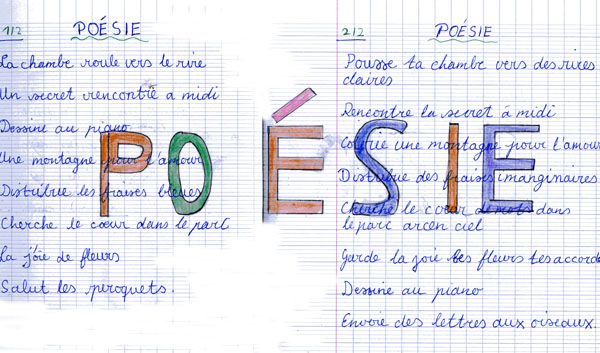 1/2 POÉSIE
La chambe roule vers le rire
Un secret rencontré a midi
Dessine au piano
Une montagne pour l'amour
Distribue les fraises bleues
Cherche le cœur dans le parc
La joie de fleurs
Salut les peroquets.
POÉSIE
2/2 POÉSIE
Pousse ta chambre vers des rires
claires
Rencontre la secret à midi
Colorie une montagne pour l'amour
Distribue des fraises imarginaires
Cherche le cœur de mots dans
le parc arc en ciel
Garde la joie les fleurs tes accords
Dessine au piano
Envoie des lettres aux oiseaux.